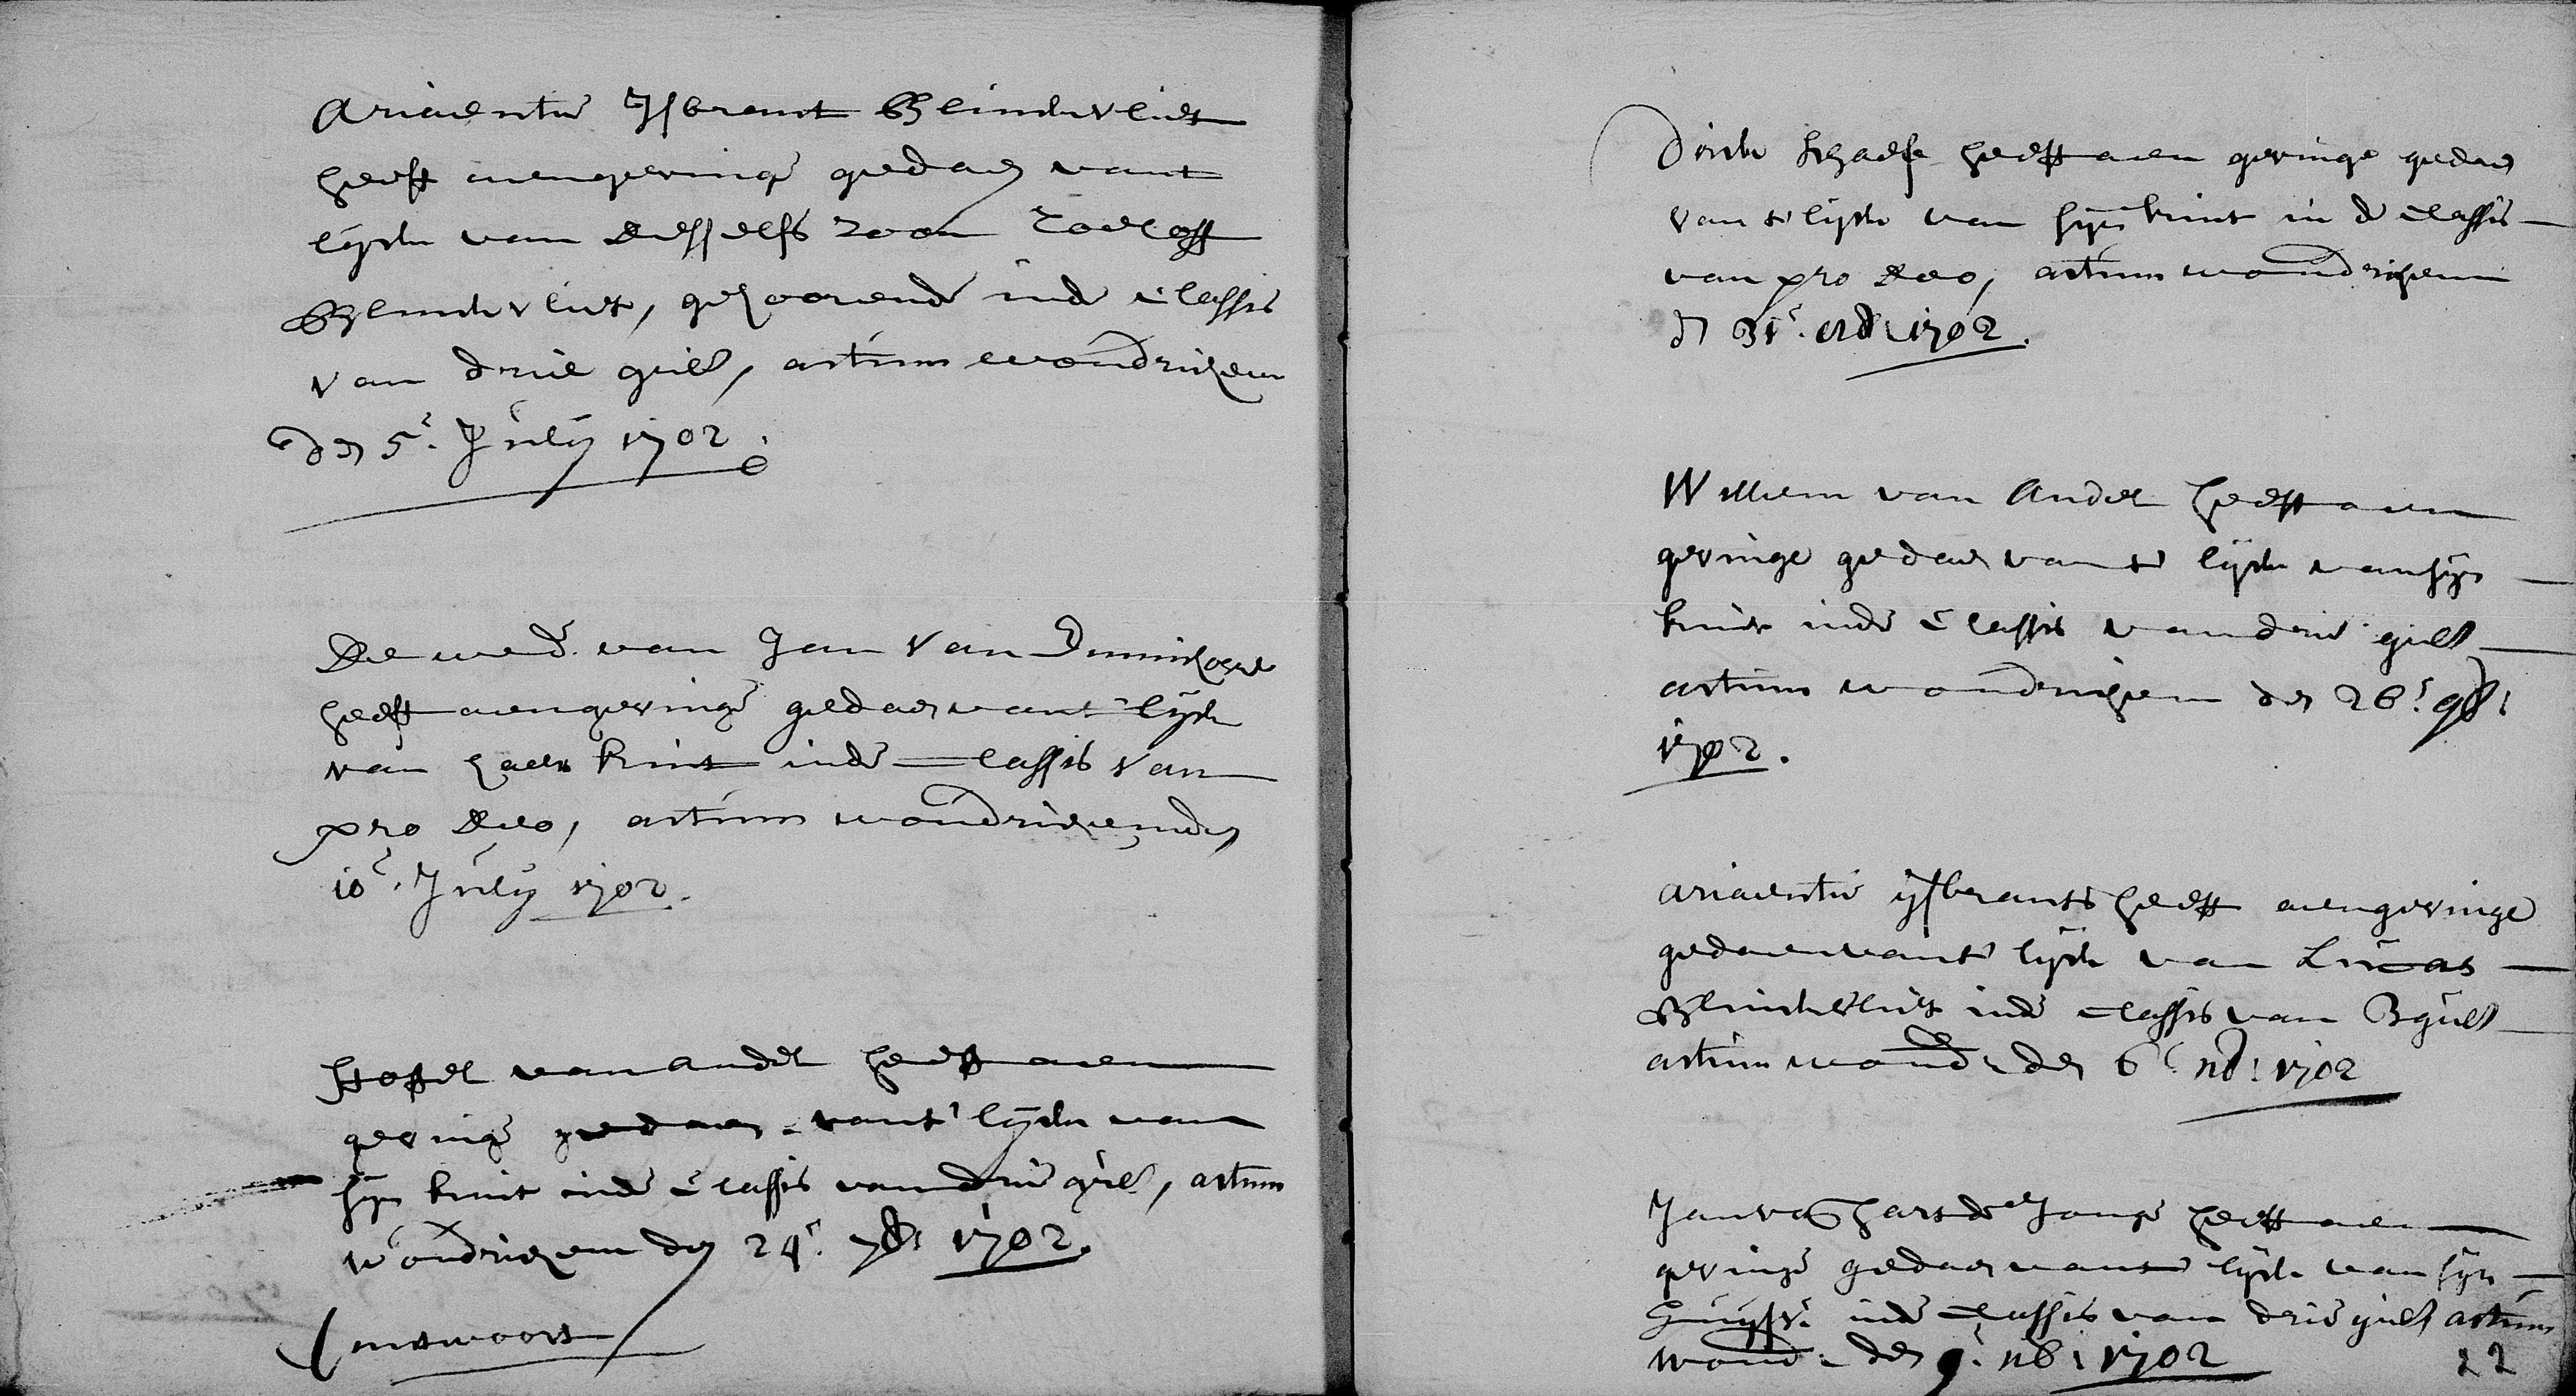 Ariaentie Ysbrant Blindevliet
heeft aengevinge gedaen vant
lijck van desselfs zoon Roeloff
Blindevliet, gehoorende inde classis
van drie gul, actum woudrichem
den 5e July 1702.
De wed. van Jan van
heeft aengevinge gedaen vant lijck
van haer kint inde classis van
pro deo, actum woudrichem den
10e July 1702.
Stoffel van andel heeft aen
gevinge gedaen vant lijck van
sijn kint inde classis van drie gul, actum
woudrichem den 24e 7br 1702.
Dirck heeft aen gevinge gedaen
van t lijck van sijn kint in de classis
van pro deo, actum woudrichem
den 31e 1702.
Willem van Andel heeft aen
gevinge gedaen van t lijck van sijn
kint inde classis van drie gul
actum woudrichem den 26e 9br
1702.
ariaentie ysbrants heeft aengevinge
gedaen vant lijck van Lucas
Blindevliet inde classis van 3 gul
actum woud. den 6e 1702
Jan de Jonge heeft aen
gevinge gedaen vant lijck van sijn
huysv. inde classis van drie gul actum
woud. den 9e 1702
22